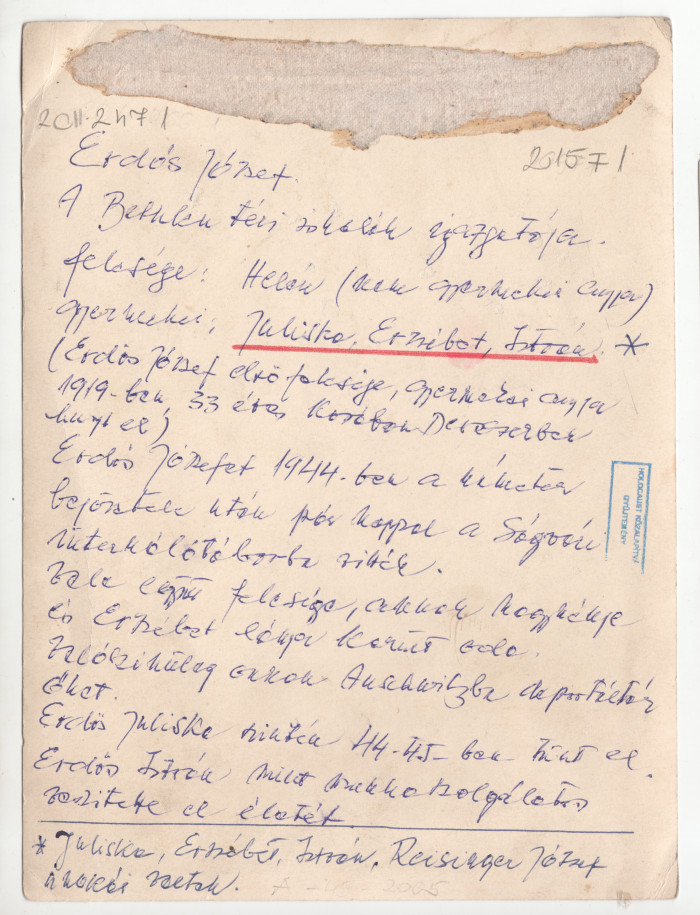 2011.247.1
2015 I 1
Erdős József.
A Bethlen téri iskolák igazgatója.
felesége: Helén (nem gyermekei anyja)
gyermekei: Juliska, Erzsébet, István. *
(Erdős József első felesége, gyermekei anyja
1919-ben, 33 éves korában Debrecenben
hunyt el)
Erdős Józsefet 1944-ben a németek
bejövetele után pár nappal a Ságvári
internálótáborba vitték.
vele együtt felesége, annak nagynénje
és Erzsébet lánya került oda.
Valószínűleg onnan Auschwitzba deportálták
őket.
Erdős Juliska szintén 44-45-ben tűnt el.
Erdős István mint munkaszolgálatos
veszítette el életét.
* Juliska, Erzsébet, István, Reisinger József
unokái voltak.
2005
HOLOCAUST KÖZALAPÍTVÁNY
GYŰJTEMÉNY